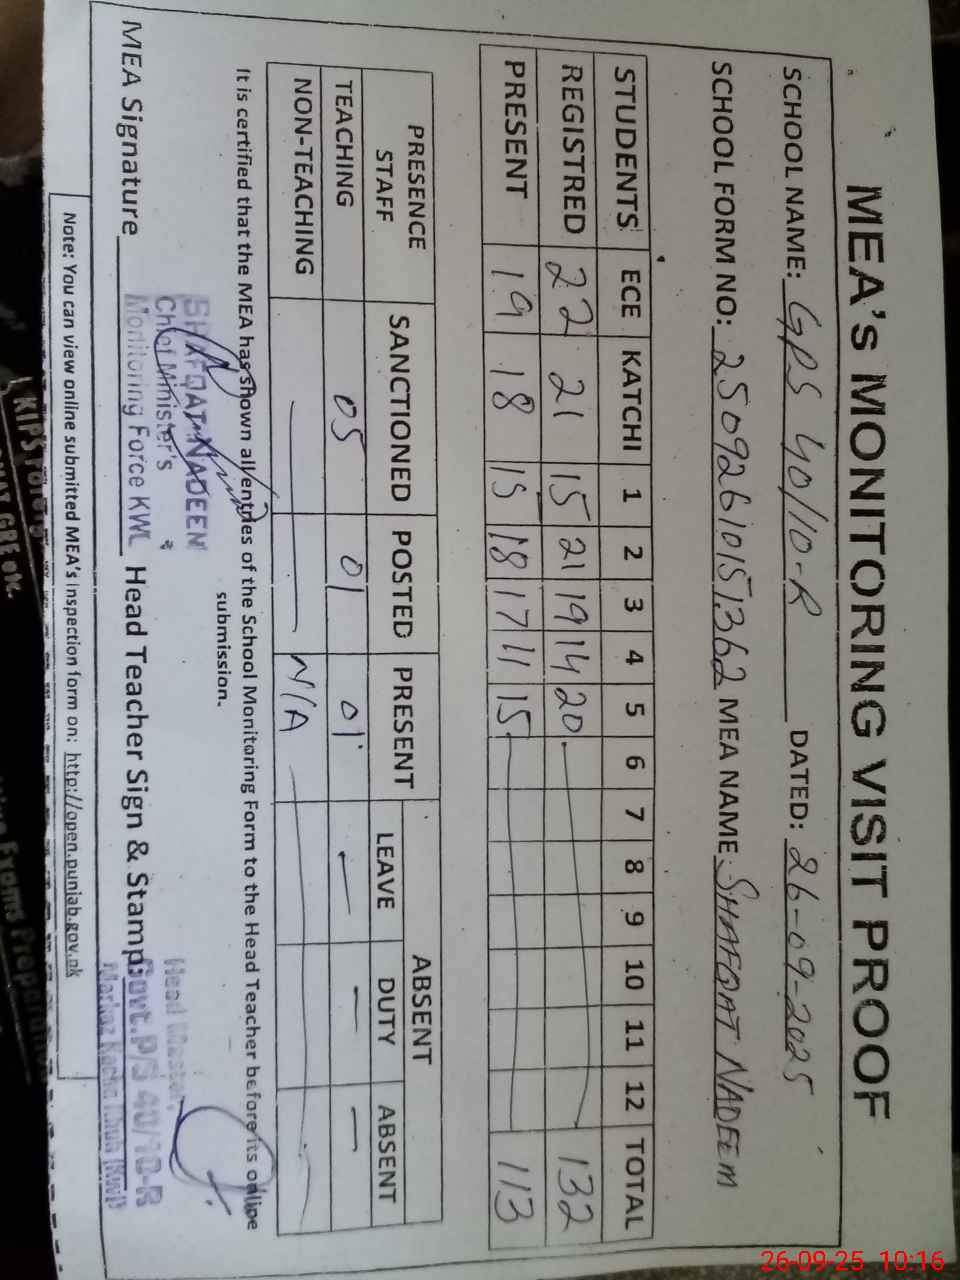 MEA's MONITORING VISIT PROOF
SCHOOL NAME: GPS 40/10-R DATED: 26-09-2025
SCHOOL FORM NO: 25092610151362 MEA NAME: SHAFQAT NADEEM
STUDENTS ECE KATCHI 1 2 3 4 5 6 7 8 9 10 11 12 TOTAL
REGISTRED 22 21 15 21 19 14 20 132
PRESENT 19 18 15 18 17 11 15 113
PRESENCE STAFF SANCTIONED POSTED PRESENT ABSENT
LEAVE DUTY ABSENT
TEACHING 05 01 01 — — —
NON-TEACHING N/A
It is certified that the MEA has shown all entries of the School Monitoring Form to the Head Teacher before its online
submission.
SHAFQAT NADEEN
Chief Minister's
Monitoring Force KWL
MEA Signature Head Teacher Sign & Stamp:
Head Master,
Govt.P/S 40/10-R
Markaz Kacha Khuh KWP
Note: You can view online submitted MEA's inspection form on: http://open.punjab.gov.pk
KIPS
etc.
Exams Preparation
26-09-25 10:16